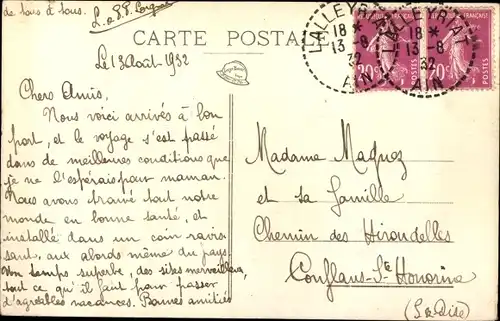 de tous à tous.
CARTE POSTALE
Le 13 Août - 1932
Chers Amis,
Nous voici arrivés à bon
port, et le voyage s'est passé
dans de meilleures conditions que
je ne l'espérais pour maman.
Nous avons trouvé tout notre
monde en bonne santé, et
installé dans un coin ravis-
sant, aux abords même du pays.
Un temps superbe, des sites merveilleux,
tout ce qu'il faut pour passer
d'agréables vacances. Bonnes amitiés
LALLEYRIAT
18 *
13 - 8
32
AIN
LALLEYRIAT
18 *
13 - 8
32
AIN
20c POSTES
20c POSTES
Madame Maquoz
et sa famille
Chemin des Hirondelles
Conflans-Ste Honorine
(S. & Oise)